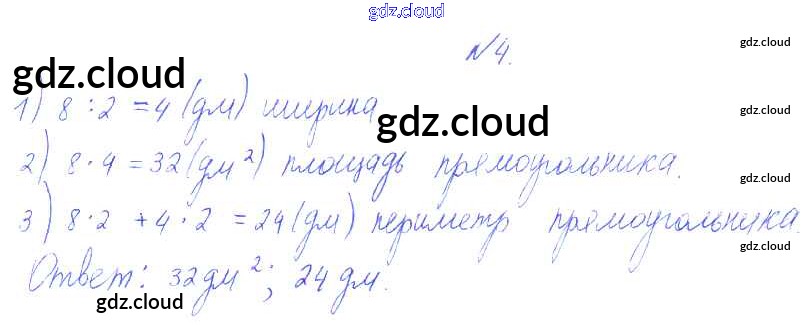 gdz.cloud
№4.
gdz.cloud
gdz.cloud
1) 8 : 2 = 4 (дм) ширина
gdz.cloud
gdz.cloud
2) 8 · 4 = 32 (дм²) площадь прямоугольника.
gdz.cloud
3) 8 · 2 + 4 · 2 = 24 (дм) периметр прямоугольника.
gdz.cloud
Ответ: 32 дм²; 24 дм.
gdz.cloud